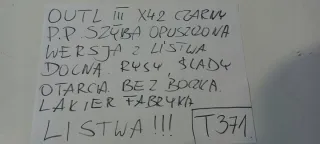 OUTL III X42 CZARNY
P.P SZYBA OPUSZCZONA
WERSJA Z LISTWA
DOLNA RYSY, ŚLADY
OTARCIA BEZ BOCZKA
LAKIER FABRYKA
LISTWA!!! T371